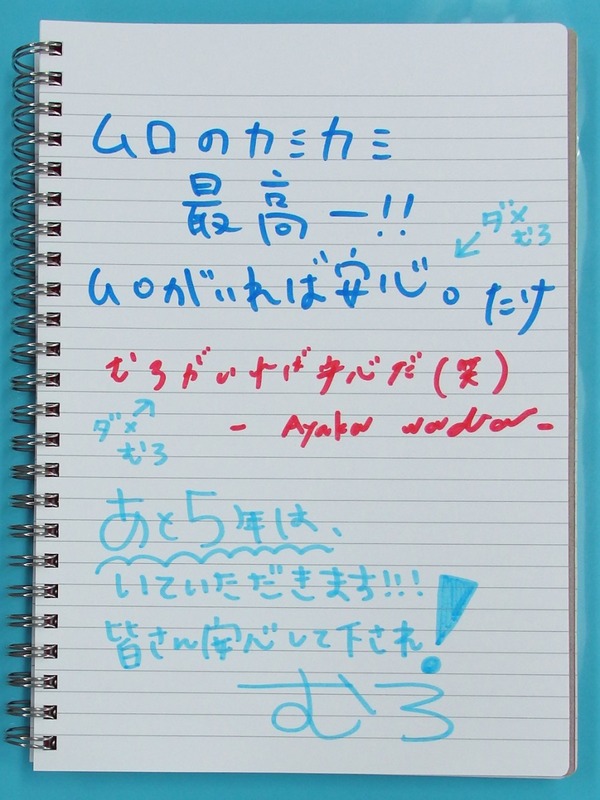 ムロのカミカミ
最高ー!!
ダメ
むろ
ムロがいれば安心。だけ
むろがいれば安心だ(笑)
ダメ
むろ
- Ayaka wada -
あと5年は、
いていただきます!!!
皆さん安心して下され!
むろ